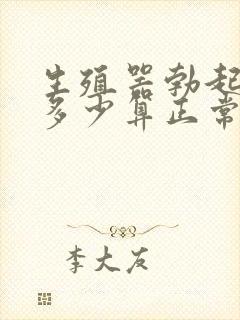 生殖器勃起
多少算正常
李大友